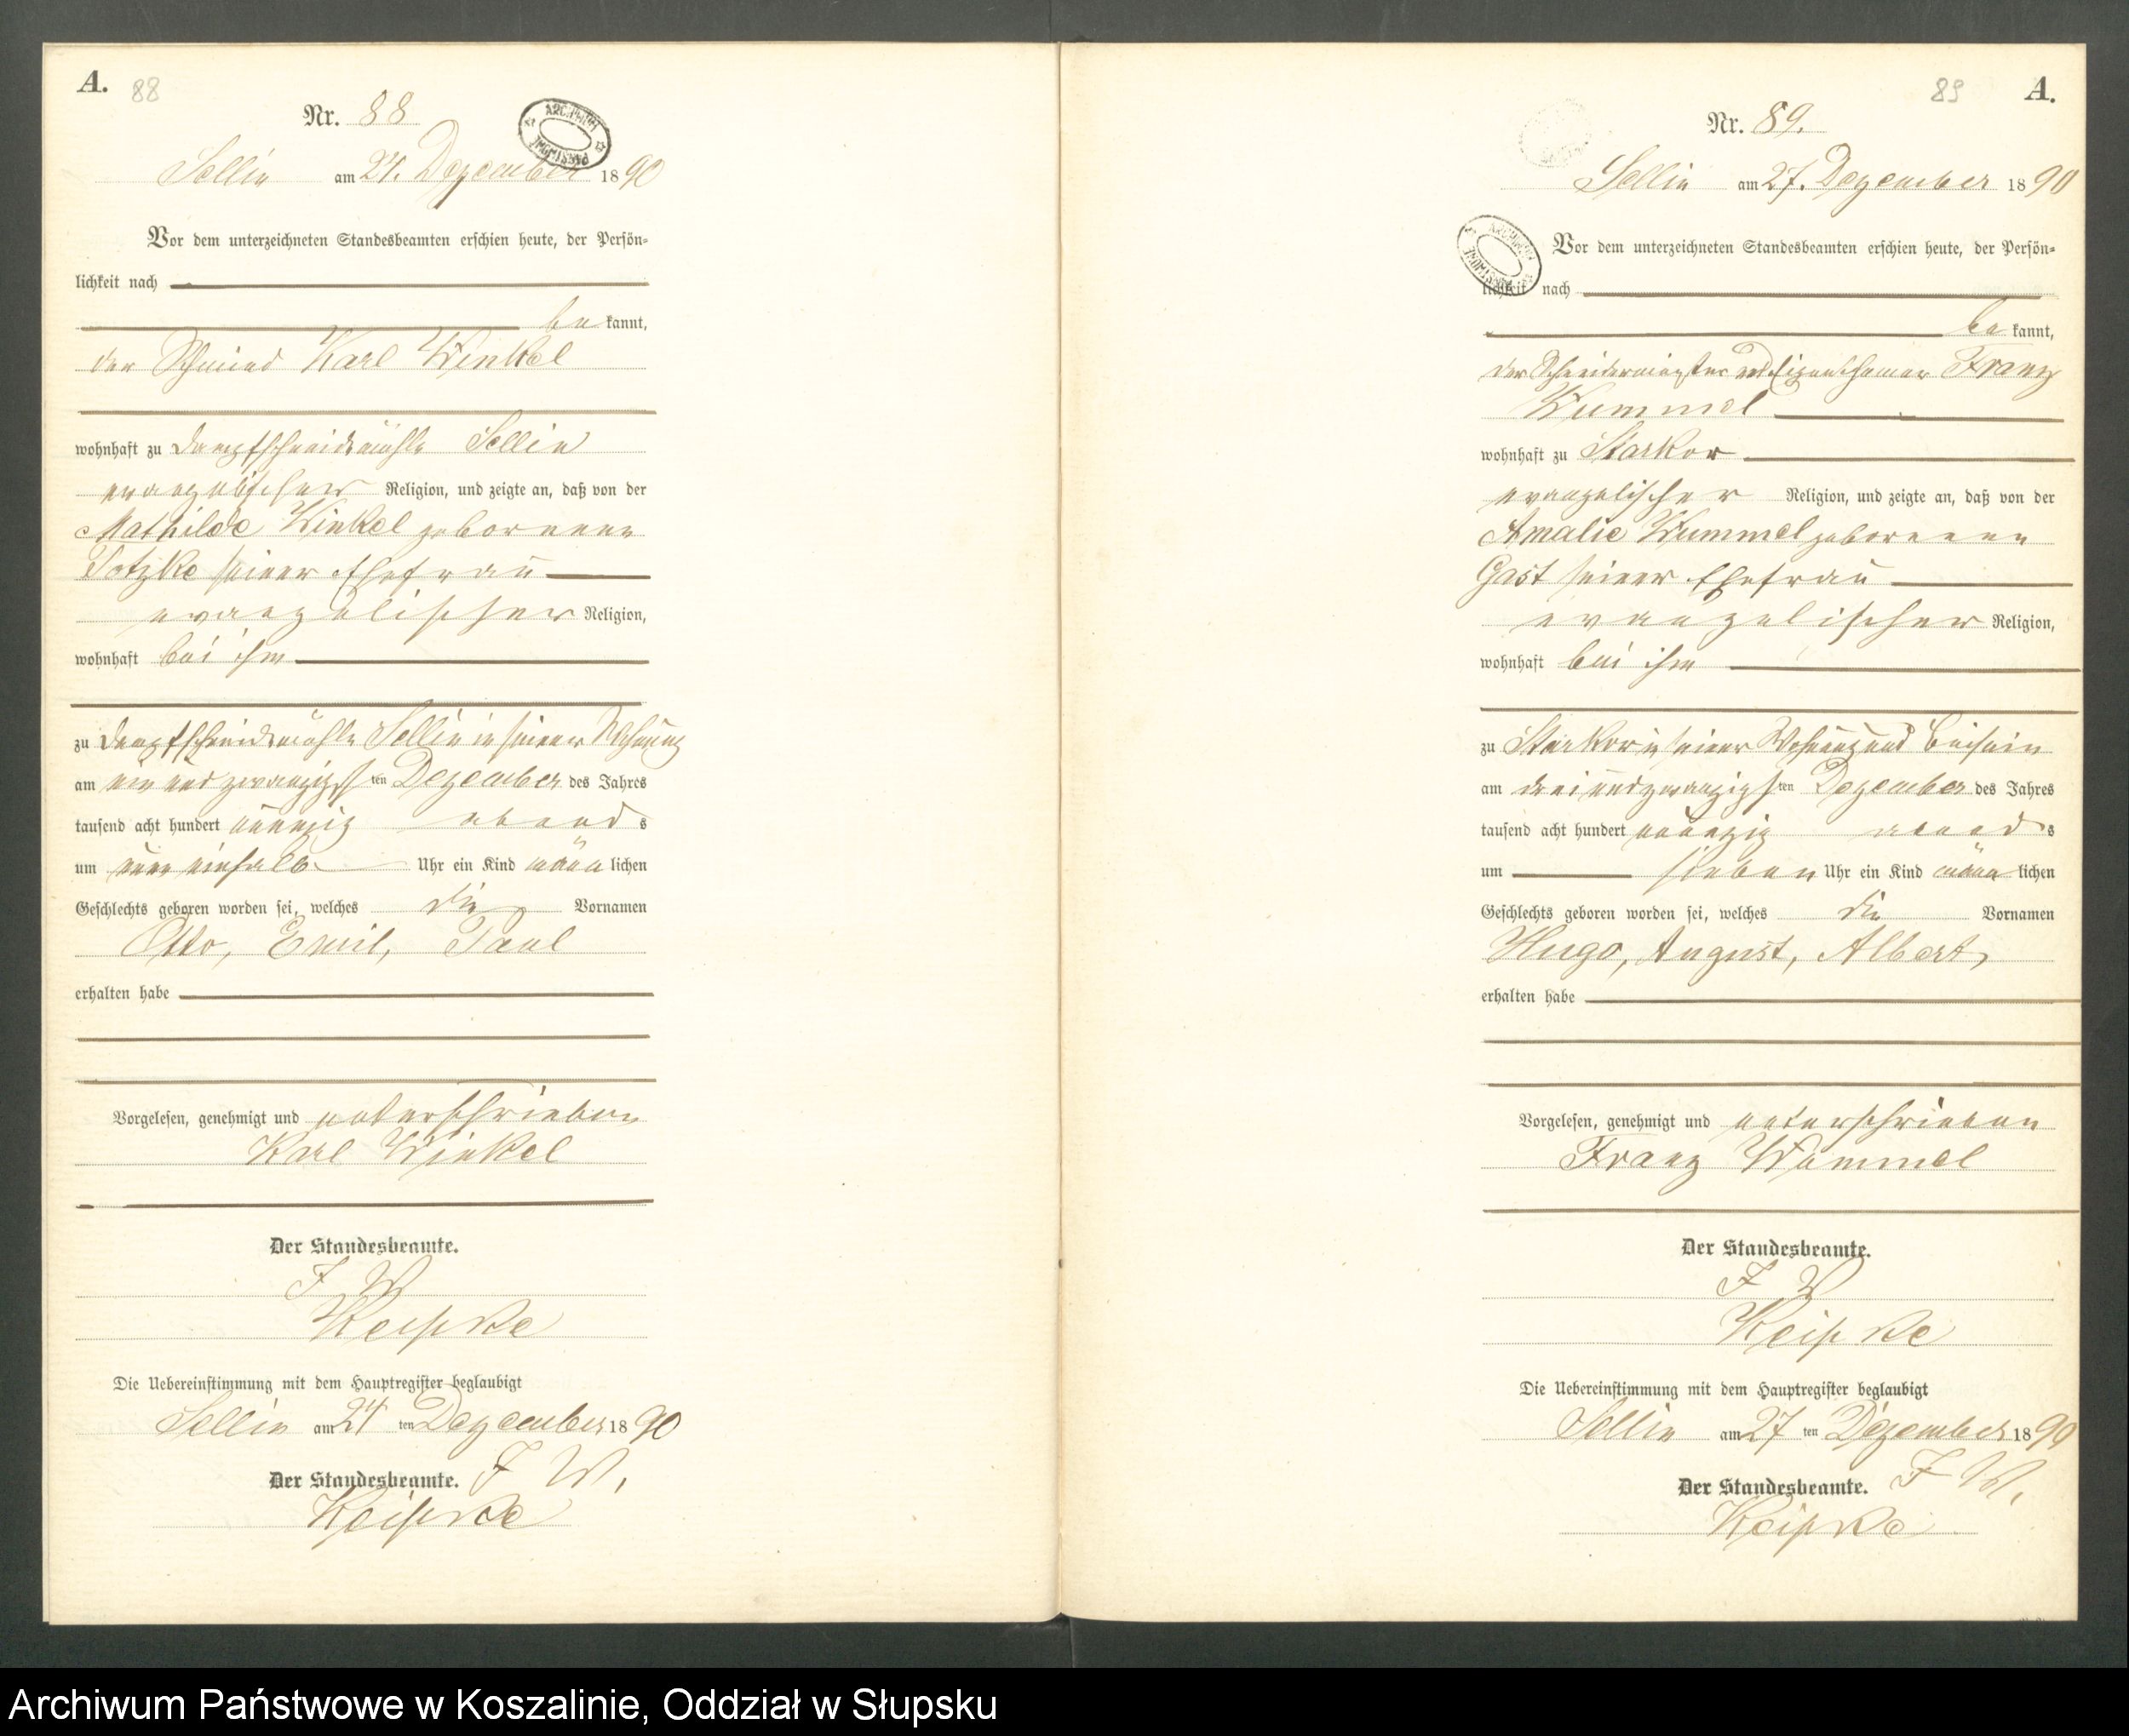 A. 88
Nr. 88
ARCHIWUM PAŃSTWOWE
Sellin am 24. Dezember 1890
Vor dem unterzeichneten Standesbeamten erschien heute, der Persön=
lichkeit nach
be kannt,
der Schmied Karl Winkel
wohnhaft zu Dampfschneidemühle Sellin
evangelischer Religion, und zeigte an, daß von der
Mathilde Winkel geborenen
Totzke seiner Ehefrau
evangelischer Religion,
wohnhaft bei ihm
zu Dampfschneidemühle Sellin in seiner Wohnung
am ein und zwanzigsten Dezember des Jahres
tausend acht hundert neunzig abends
um neun einhalb Uhr ein Kind männlichen
Geschlechts geboren worden sei, welches die Vornamen
Otto, Emil, Paul
erhalten habe
Vorgelesen, genehmigt und unterschrieben
Karl Winkel
Der Standesbeamte.
I W
Keipke
Die Uebereinstimmung mit dem Hauptregister beglaubigt
Sellin am 24 ten Dezember 1890
Der Standesbeamte. I W.
Keipke
89 A.
Nr. 89.
Sellin am 27. Dezember 1890
ARCHIWUM PAŃSTWOWE
Vor dem unterzeichneten Standesbeamten erschien heute, der Persön=
lichkeit nach
be kannt,
der Schneidermeister und Eigenthümer Franz
Wummel
wohnhaft zu Starkow
evangelischer Religion, und zeigte an, daß von der
Amalie Wummel geborenen
Gast seiner Ehefrau
evangelischer Religion,
wohnhaft bei ihm
zu Starkow in seiner Wohnung und Beisein
am drei und zwanzigsten Dezember des Jahres
tausend acht hundert neunzig abends
um sieben Uhr ein Kind männlichen
Geschlechts geboren worden sei, welches die Vornamen
Hugo, August, Albert,
erhalten habe
Vorgelesen, genehmigt und unterschrieben
Franz Wummel
Der Standesbeamte.
I W
Keipke
Die Uebereinstimmung mit dem Hauptregister beglaubigt
Sellin am 27 ten Dezember 1890
Der Standesbeamte. I W.
Keipke
Archiwum Państwowe w Koszalinie, Oddział w Słupsku